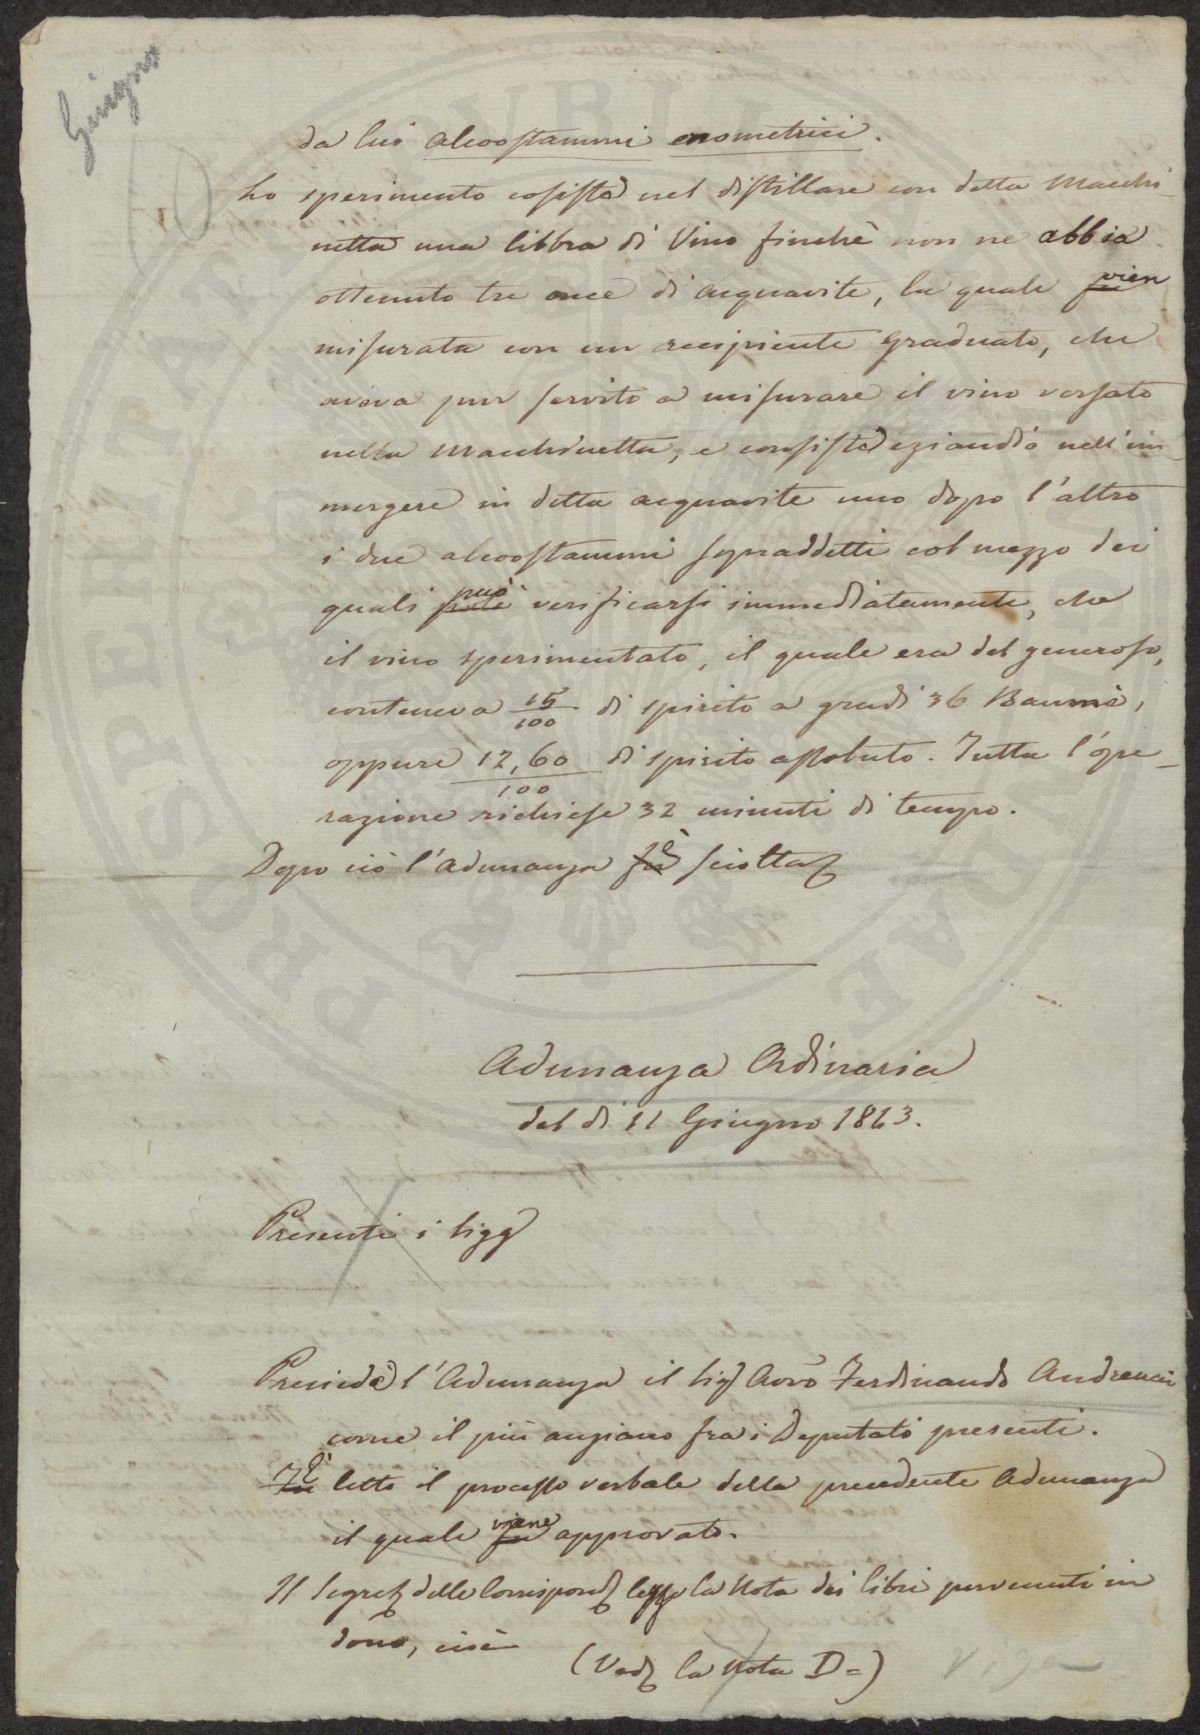 Giugno
da lui alcoostammi enometrici.
Lo sperimento cosiste nel distillare con detta Macchi-
netta una libbra di Vino finchè non ne abbia
ottenuto tre once di acquavite, la quale fu vien
misurata con un recipiente graduato, che
aveva pur servito a misurare il vino versato
nella Macchinetta, e consiste eziandio nell'im-
mergere in detta acquavite uno dopo l'altro
i due alcoostammi sopraddetti col mezzo dei
quali potè può verificarsi immediatamente, che
il vino sperimentato, il quale era del generoso,
conteneva 15/100 di spirito a gradi 36 Baumè,
oppure 12,60/100 di spirito assoluto. Tutta l'ope-
razione richiese 32 minuti di tempo.
Dopo ciò l'adunanza fu è sciolta
Adunanza Ordinaria
del dì 11 Giugno 1843.
Presenti i Sigg
Presiede l'Adunanza il Sig Avv Ferdinando Andreucci
come il più anziano fra i Deputati presenti.
Fu È letto il processo verbale della precedente Adunanza
il quale fu viene approvato.
Il Segret delle Corrispond legge la Nota dei libri pervenuti in
dono, cioè
(Ved la Nota D=)